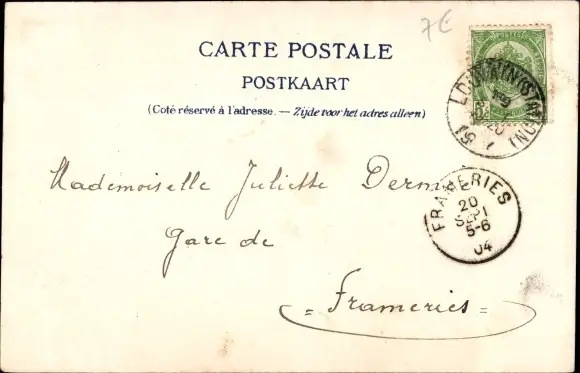 7€
CARTE POSTALE
POSTKAART
(Coté réservé à l'adresse. — Zijde voor het adres alleen)
Mademoiselle Juliette
Gare de
= Frameries =
FRAMERIES
20
SEPT
5-6
04